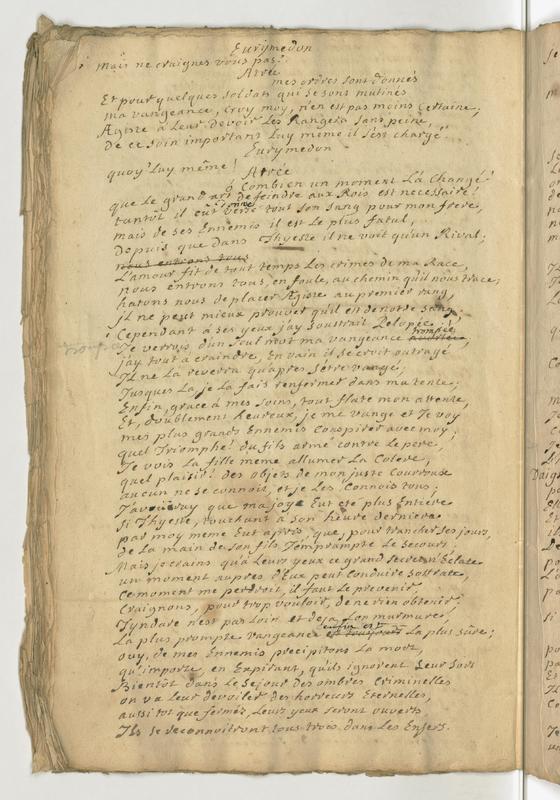 Eurymedon
mais ne craignes vous pas?
Atrée
mes ordres sont donnés
Et pour quelques soldats qui se sont mutinés
ma vangeance, croy moy, n'en est pas moins certaine,
Ægiste à Leur devoir Les Rangera sans peine,
de ce soin important Luy même il s'est chargé
Eurymedon
quoy! Luy même!
Atrée
ô Combien un moment L'a Changé!
que Le grand art de feindre aux Rois est necessaire!
tantôt il eut versé tout son sang pour mon frere,
mais de ses Ennemis il est Le plus fatal,
Depuis que dans Thyeste il ne voit qu'un Rival;
nous entrons tous
L'amour fit de tout temps Les crimes de ma Race,
nous entrons tous, en foule, au chemin qu'il nous trace;
hatons nous de placer Ægiste au premier rang,
il ne peut mieux prouver qu'il est de notre sang;
Cependant à ses yeux j'ay soustrait Pelopée
trompée
Je verrois d'un seul mot ma vangeance
j'ay tout à craindre, En vain il se croit outragé
Il ne La reverra qu'apres s'être vangé;
Jusques La, je La fais renfermer dans ma tente;
Enfin, grace à mes soins, tout flate mon attente,
Et, doublement heureux, je me vange et Je voy
mes plus grands Ennemis Conspirer avec moy;
quel Triomphe! du fils armé contre Le pere,
Je vois La fille meme allumer La Colere,
quel plaisir! des objets de mon juste Courroux
aucun ne se connoit, et je Les Connois tous.
J'avoüeray que ma joye Eut eté plus Entiere
Si Thyeste, touchant à son heure derniere
par moy meme Eut apris que, pour trancher ses jours,
de La main de son fils J'emprunte Le Secours
Mais je crains qu'à Leurs yeux ce grand Secret n'Eclate
un moment aupres d'Eux peut Conduire Sostrate,
Ce moment me perdroit, il faut Le prevenir,
Craignons, pour trop vouloir, de ne rien obtenir;
Tyndare n'est pas Loin et deja L'on murmure,
enfin est
La plus prompte vangeance est toujours La plus sûre;
ouy, de mes Ennemis precipitons La mort,
qu'importe, en Expirant, qu'ils ignorent Leur Sort
Bientôt dans Le Sejour des ombres Criminelles
on va Leur devoiler des horreurs Eternelles,
aussi tot que fermés, Leurs yeux seront ouverts
Ils se reconnoitront tous trois dans Les Enfers.